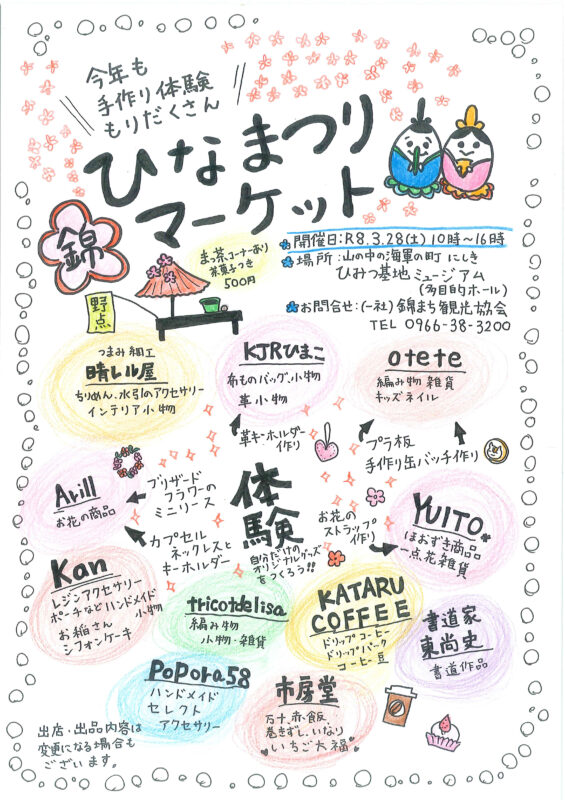 今年も
手作り体験
もりだくさん
ひなまつり
マーケット
錦
まっ茶コーナーあり
茶菓子つき
500円
野点
開催日:R8.3.28(土)10時〜16時
場所:山の中の海軍の町にしき
ひみつ基地ミュージアム
(多目的ホール)
お問合せ:(一社)錦まち観光協会
TEL 0966-38-3200
つまみ細工
晴レル屋
ちりめん、水引のアクセサリー
インテリア小物
KJRひまこ
あものバッグ、小物
革小物
otete
編み物雑貨
キッズネイル
革キーホルダー
作り
プラ板
手作り缶バッチ作り
Arill
お花の商品
プリザード
フラワーの
ミニリース
カプセル
ネックレスと
キーホルダー
体験
自分だけの
オリジナルグッズ
をつくろう!!
お花の
ストラップ
作り
YUITO*
ほおずき商品
一点花雑貨
Kan
レジンアクセサリー
ポーチなどハンドメイド
小物
お稲さん
シフォンケーキ
tricotdelisa
編み物
小物・雑貨
KATARU
COFFEE
ドリップコーヒー
ドリップパック
コーヒー豆
書道家
東尚史
書道作品
PoPora58
ハンドメイド
セレクト
アクセサリー
市房堂
万十、赤飯、
巻きずし、いなり
いちご大福
出店・出品内容は
変更になる場合も
ございます。